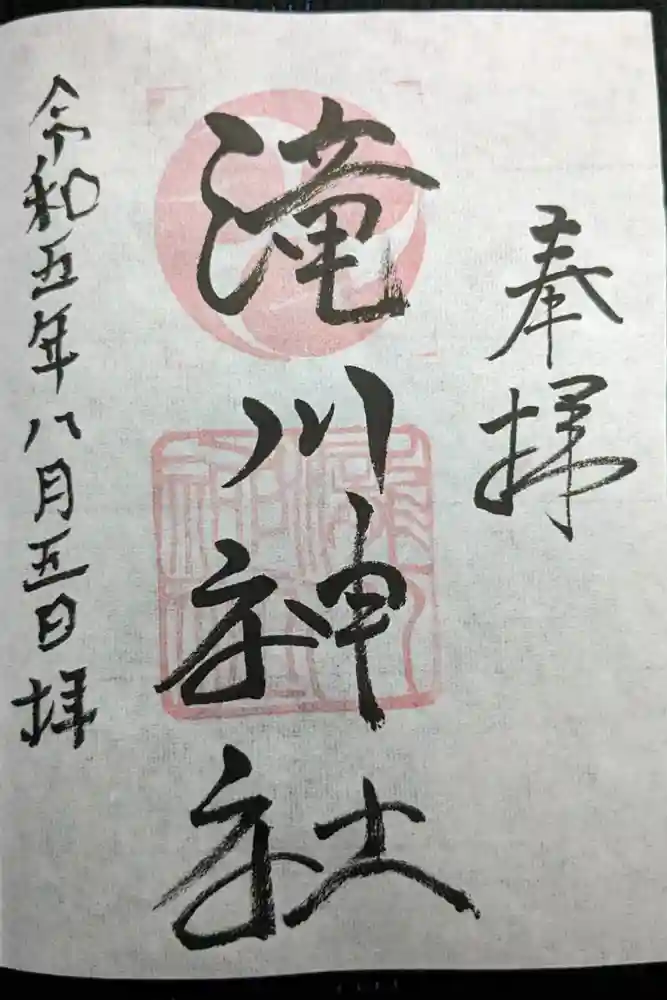 奉拝
滝川神社
令和五年八月五日拝